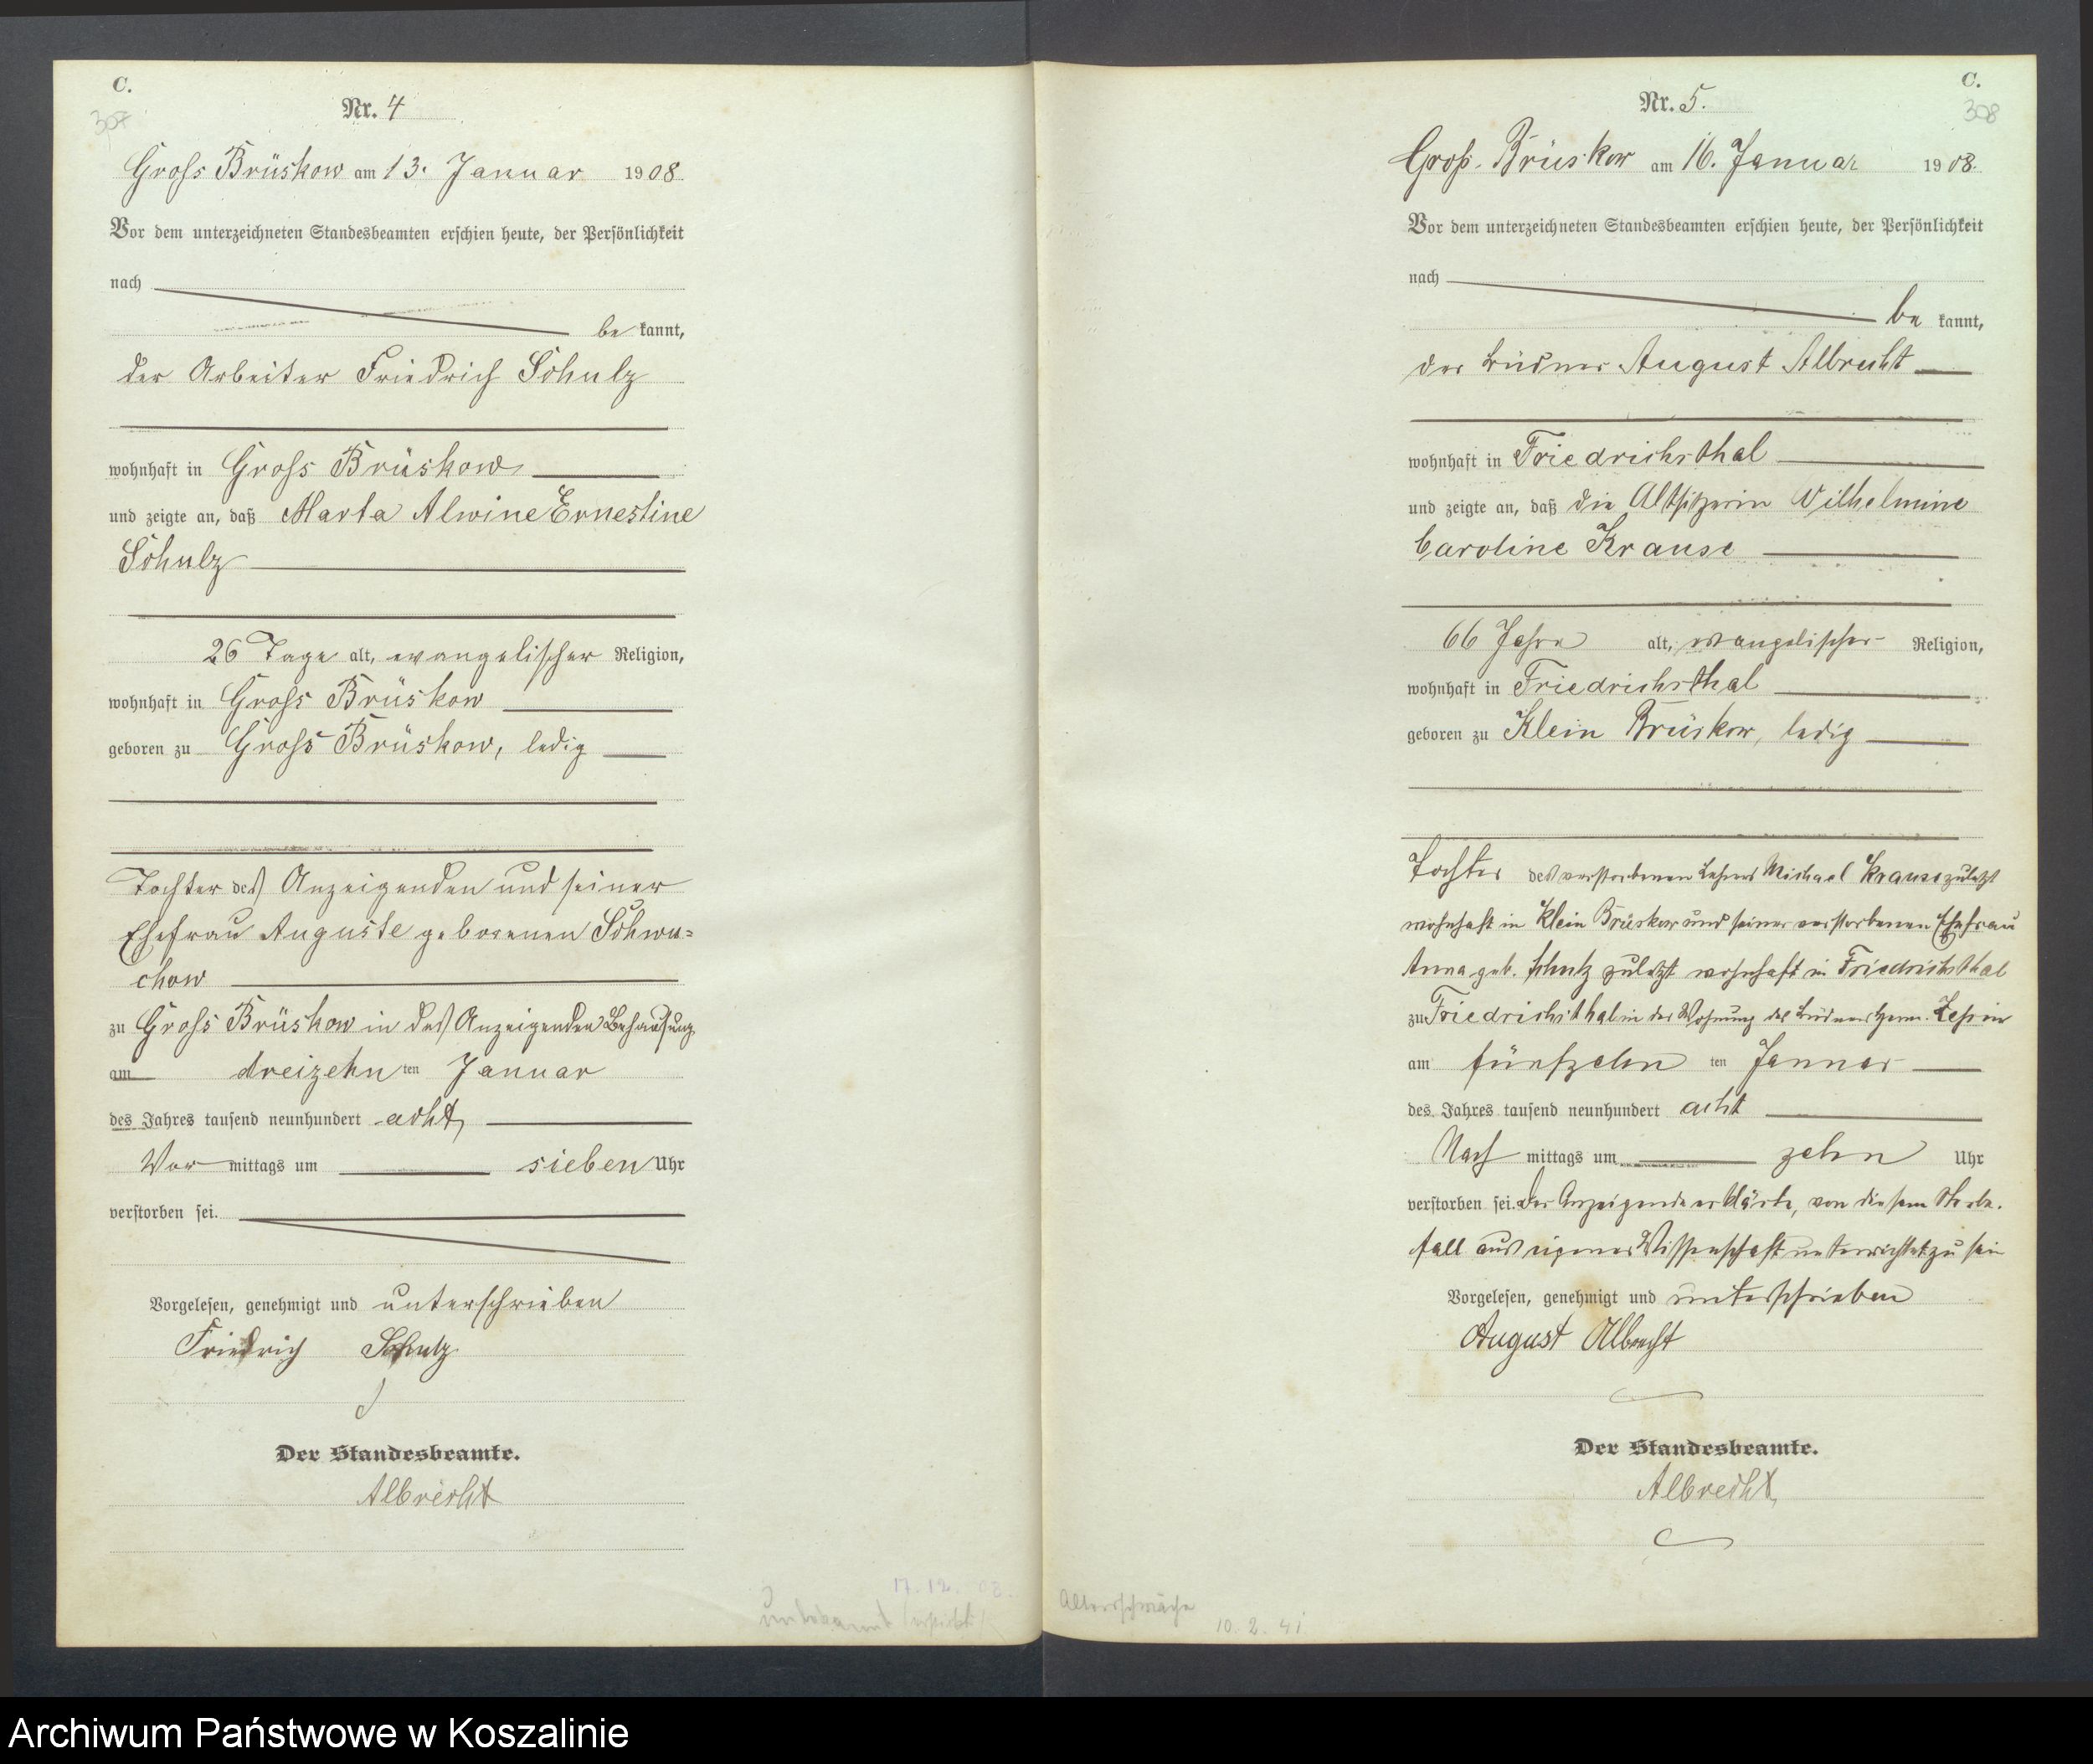 C.
307
Nr. 4
Gross Brüskow am 13. Januar 1908.
Vor dem unterzeichneten Standesbeamten erschien heute, der Persönlichkeit
nach
be kannt,
der Arbeiter Friedrich Schulz
wohnhaft in Gross Brüskow
und zeigte an, daß Marta Alwine Ernestine
Schulz
26 Tage alt, evangelischer Religion,
wohnhaft in Gross Brüskow
geboren zu Gross Brüskow, ledig
Tochter des Anzeigenden und seiner
Ehefrau Auguste geborenen Schwu=
chow
zu Gross Brüskow in des Anzeigenden Behausung
am dreizehn ten Januar
des Jahres tausend neunhundert acht,
Vor mittags um sieben Uhr
verstorben sei.
Vorgelesen, genehmigt und unterschrieben
Friedrich Schulz
Der Standesbeamte.
Albrecht
17. 12. 08.
unbekannt
C.
308
Nr. 5.
Groß-Brüskow am 16. Januar 1908.
Vor dem unterzeichneten Standesbeamten erschien heute, der Persönlichkeit
nach
be kannt,
der Büdner August Albrecht
wohnhaft in Friedrichsthal
und zeigte an, daß die Altsitzerin Wilhelmine
Caroline Krause
66 Jahre alt, evangelischer Religion,
wohnhaft in Friedrichsthal
geboren zu Klein Brüskow, ledig
Tochter des verstorbenen Lehrers Michael Krause zuletzt
wohnhaft in Klein Brüskow und seiner verstorbenen Ehefrau
Anna geb. Schulz zuletzt wohnhaft in Friedrichsthal
zu Friedrichsthal in der Wohnung des Büdners Herm.
am fünfzehn ten Januar
des Jahres tausend neunhundert acht
Nach mittags um zehn Uhr
verstorben sei. Der Anzeigende erklärte, von diesem Sterbe-
fall aus eigener Wissenschaft unterrichtet zu sein
Vorgelesen, genehmigt und unterschrieben
August Albrecht
Der Standesbeamte.
Albrecht
Altersschwäche
10. 2. 41
Archiwum Państwowe w Koszalinie